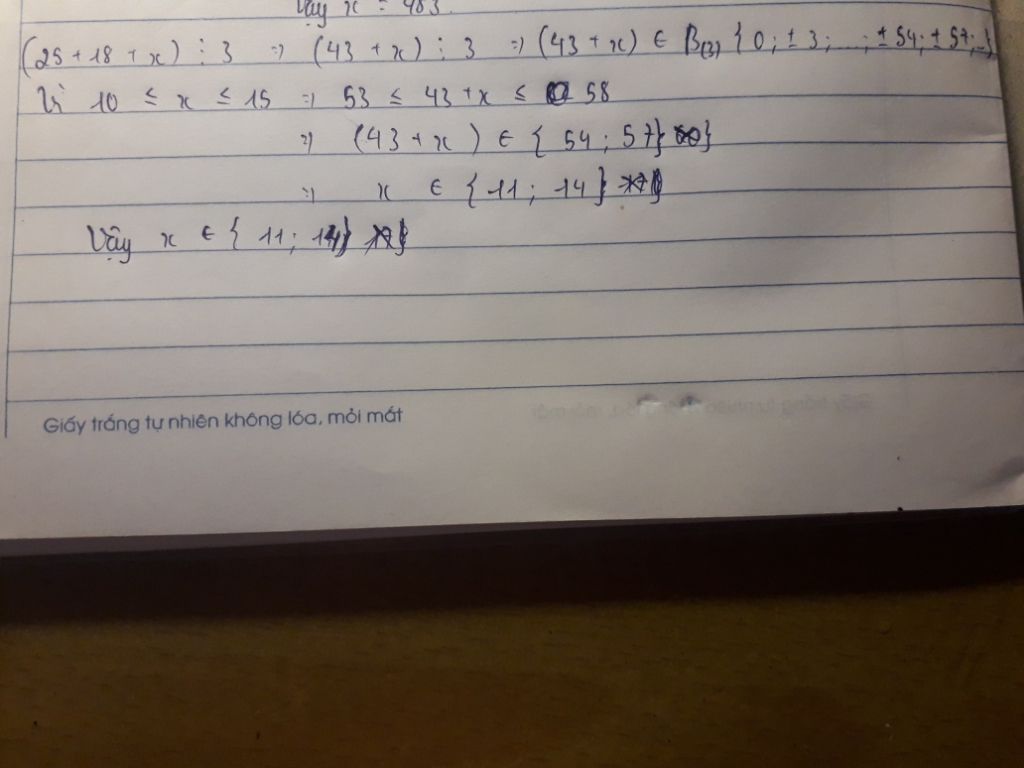 Vậy x = 483.
(25 + 18 + x) ⋮ 3 => (43 + x) ⋮ 3 => (43 + x) ∈ B(3) {0; ±3; ...; ±54; ±57; ...}
Vì 10 ≤ x ≤ 15 => 53 ≤ 43 + x ≤ 58
=> (43 + x) ∈ {54; 57}
=> x ∈ {11; 14}
Vậy x ∈ {11; 14}
Giấy trắng tự nhiên không lóa, mỏi mát